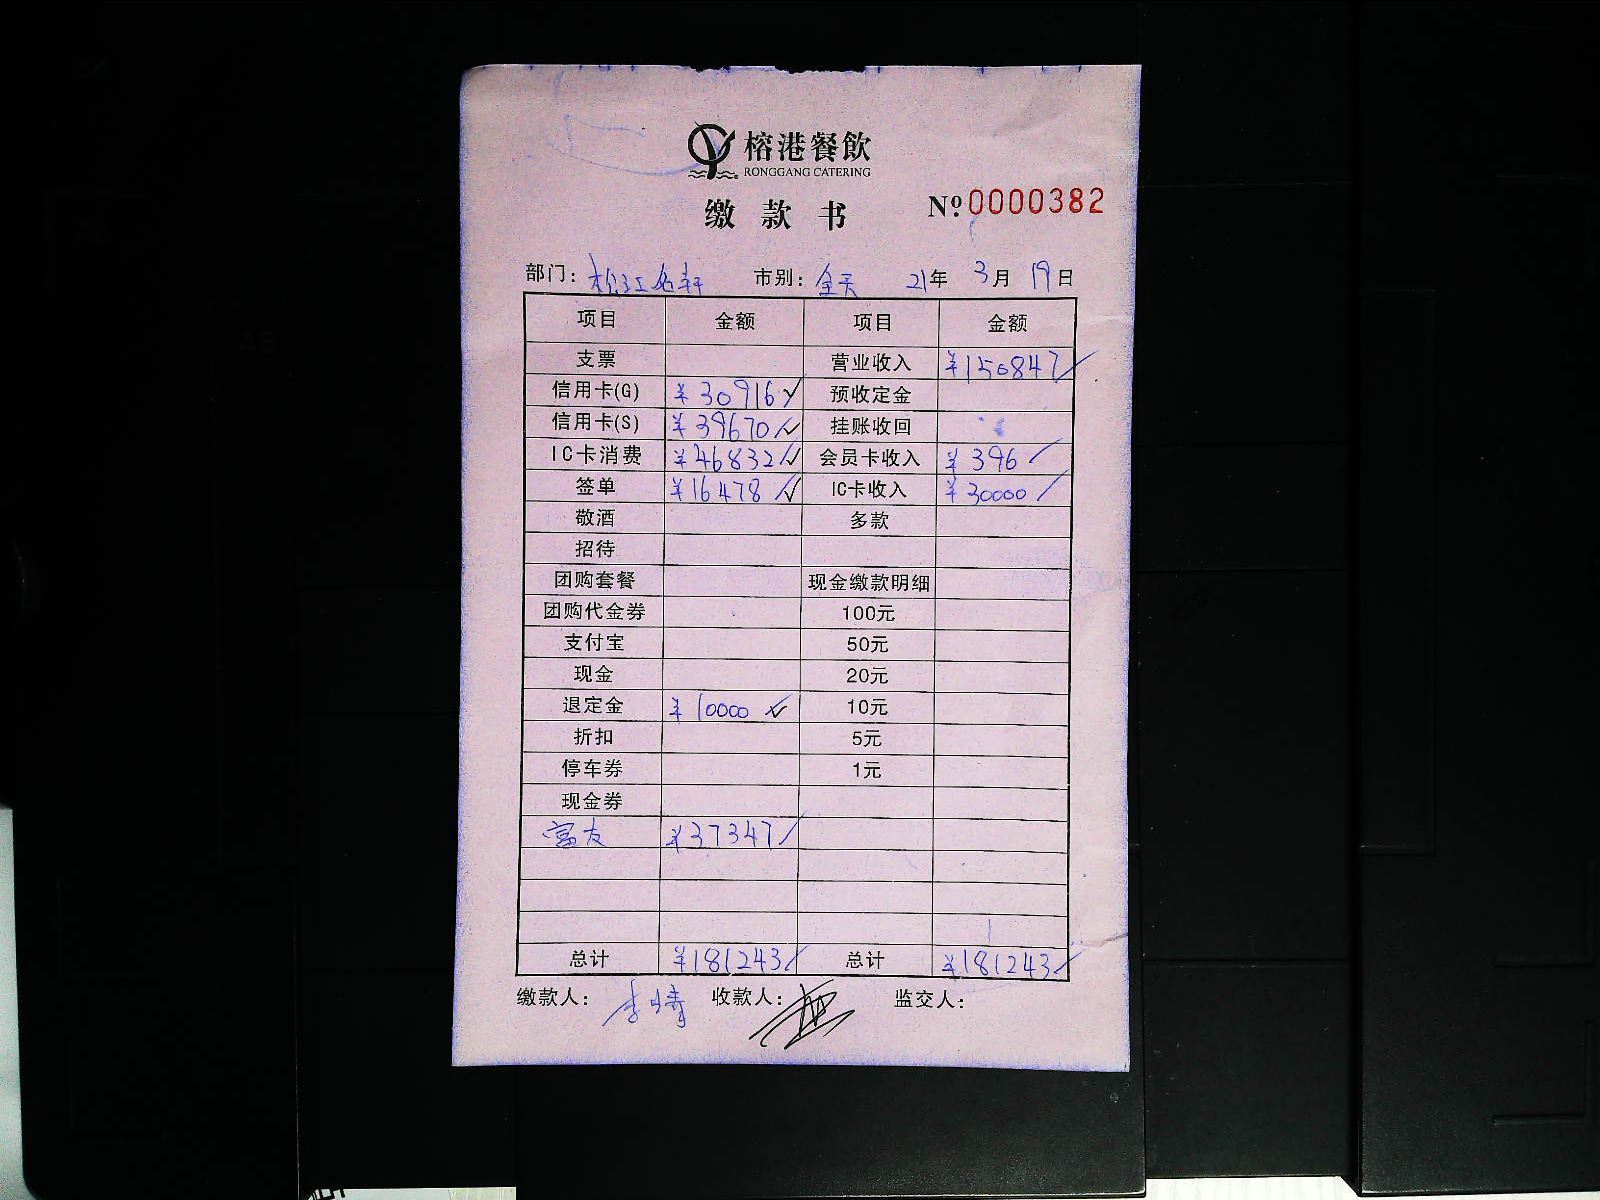 榕港餐飲
RONGGANG CATERING
缴款书 Nº 0000382
部门: 松江名轩 市别: 全天 21年 3月 19日
项目 金额 项目 金额
支票 营业收入 ¥150847
信用卡(G) ¥30916 预收定金
信用卡(S) ¥39670 挂账收回
IC卡消费 ¥46832 会员卡收入 ¥396
签单 ¥16478 IC卡收入 ¥30000
敬酒 多款
招待
团购套餐 现金缴款明细
团购代金券 100元
支付宝 50元
现金 20元
退定金 ¥10000 10元
折扣 5元
停车券 1元
现金券
富友 ¥37347
总计 ¥181243 总计 ¥181243
缴款人: 李晴 收款人: 监交人: